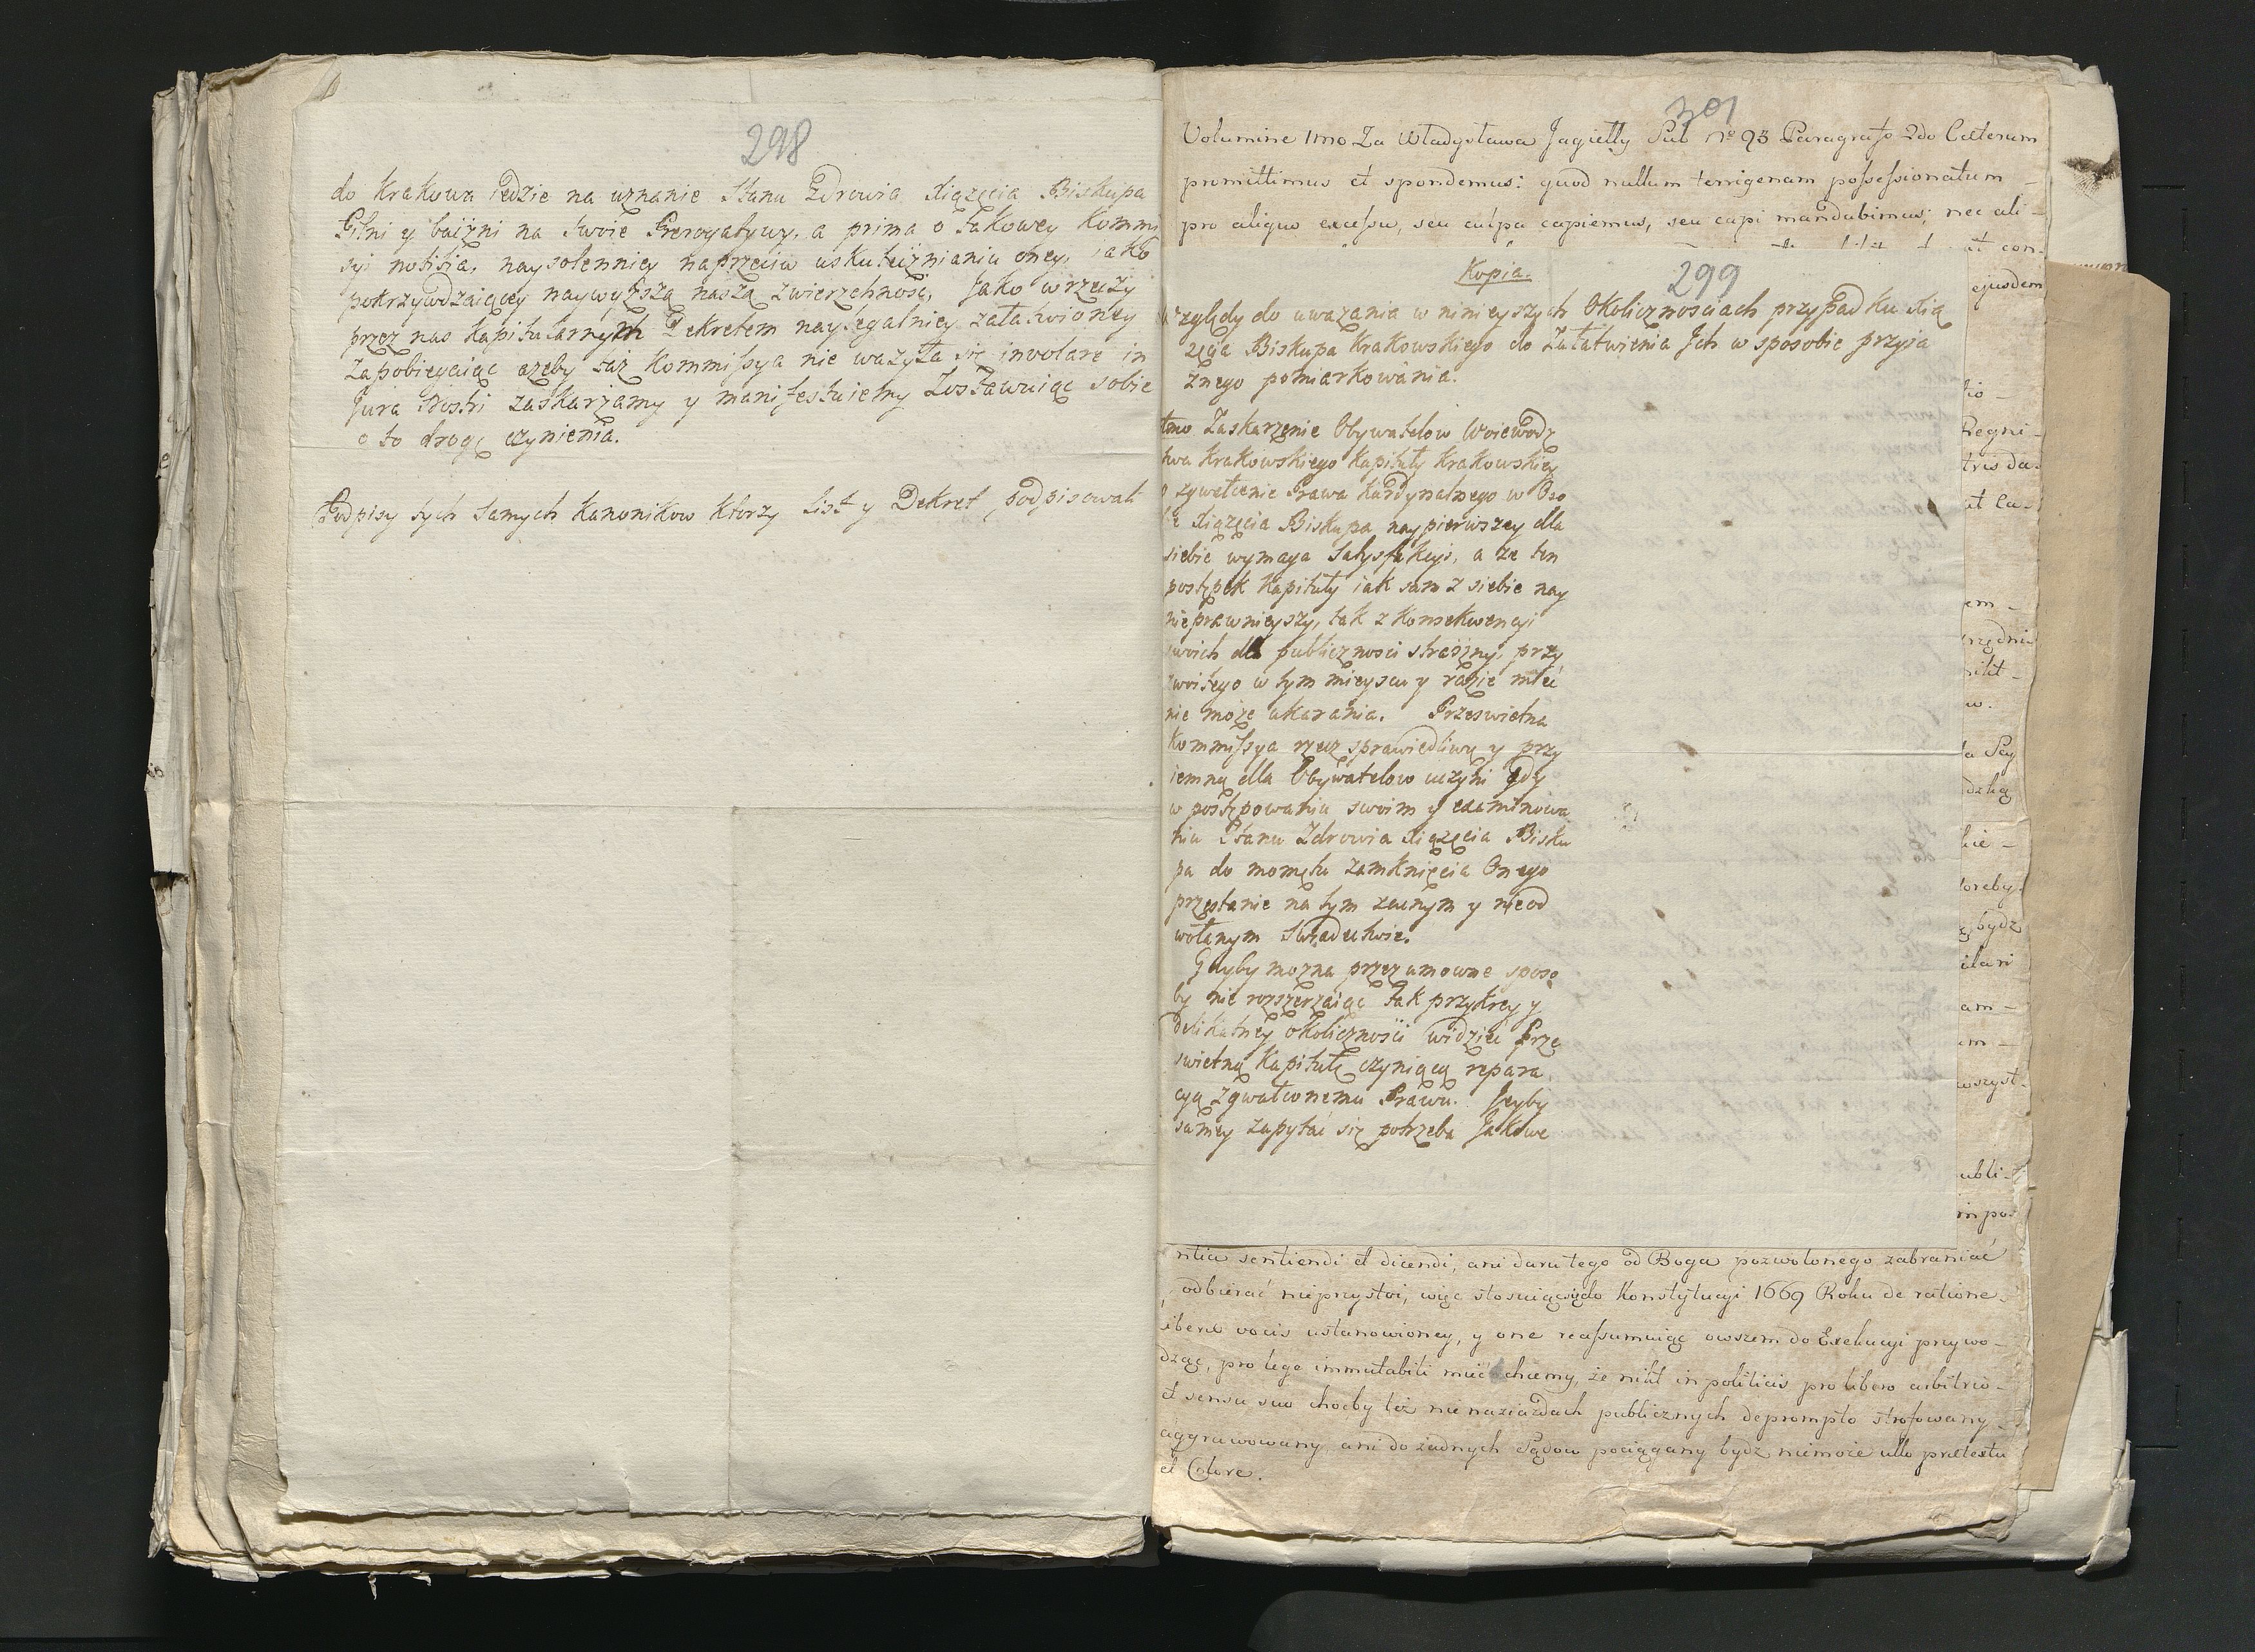 298
do Krakowa iedzie na uznanie Stanu Zdrowia Xiążęcia Biskupa
Pilni y baczni na swoie Prerogatywy, a prima o takowey Kommi
syi notitia, naysolenniey naprzeciw uskutecznianiu oney, iako
pokrzywdzaiącey naywyższą naszą zwierzchność, Jako w rzeczy
przez nas kapitularnym Dekretem naylegalniey załatwioney
Zapobiegaiąc ażeby taż Kommissya nie ważyła się involare in
Jura Nostri zaskarżamy y manifestuiemy Zostawuiąc sobie
o to drogę czynienia.
Podpisy tych samych Kanonikow ktorzy List y Dekret podpisowali
301
Volumine 1mo Za Władysława Jagiełły Sub No 93 Paragrafo 2do Caeterum
promittimus et spondemus: quod nullum terrigenam possessionatum
pro aliquo excessu, seu culpa capiemus, seu capi mandabimus; nec ali-
et con-
ejusdem
Kopia.
299
Względy do uważania w ninieyszych Okolicznościach przypadku Xią
żęcia Biskupa Krakowskiego do Załatwienia Jch w sposobie przyia
znego pomiarkowania.
1mo Zaskarżenie Obywatelow Woiewodz
twa Krakowskiego Kapituły Krakowskiey
o zgwałcenie Prawa Kardynalnego w Oso
bie Xiążęcia Biskupa naypierwszey dla
siebie wymaga Satysfakcyi, a że ten
postępek Kapituły iak sam z siebie nay
nieprawnieyszy, tak z Konsekwencyi
swoich dla publiczności straszny, przy
zwoitego w tym mieyscu y razie mieć
nie może ukarania. Prześwietna
Kommissya rzecz sprawiedliwą y przy
iemną dla Obywatelow uczyni gdy
w postępowaniu swoim y examinowa
niu Stanu Zdrowia Xiążęcia Bisku
pa do momętu zamknięcia Onego
przestanie na tym zacnym y nieod
wołanym Swiadectwie.
Gdyby można przez umowne sposo
by nie rozszerzaiąc tak przykrey y
delikatney okoliczności widzieć Prze
swietną Kapitułę czyniącą repara
cyą zgwałconemu Prawu. Jeyby
samey zapytać się potrzeba Jakowe
Regni-
ntia sentiendi et dicendi, ani daru tego od Boga pozwolonego zabraniać
odbierać nieprzystoi, więc stosuiąc się do Konstytucyi 1669 Roku de ratione
liberae vocis ustanowioney, y one reassumuiąc owszem do Exekucyi przywo-
dząc, pro lege immutabili mieć chcemy, że nikt in politicis pro libero arbitrio-
et sensu suo choćby też na naziazdach publicznych deprompto strofowany
aggrawowany, ani do żadnych Sądow pociągany bydz niemoże ullo praetextu
et Colore.